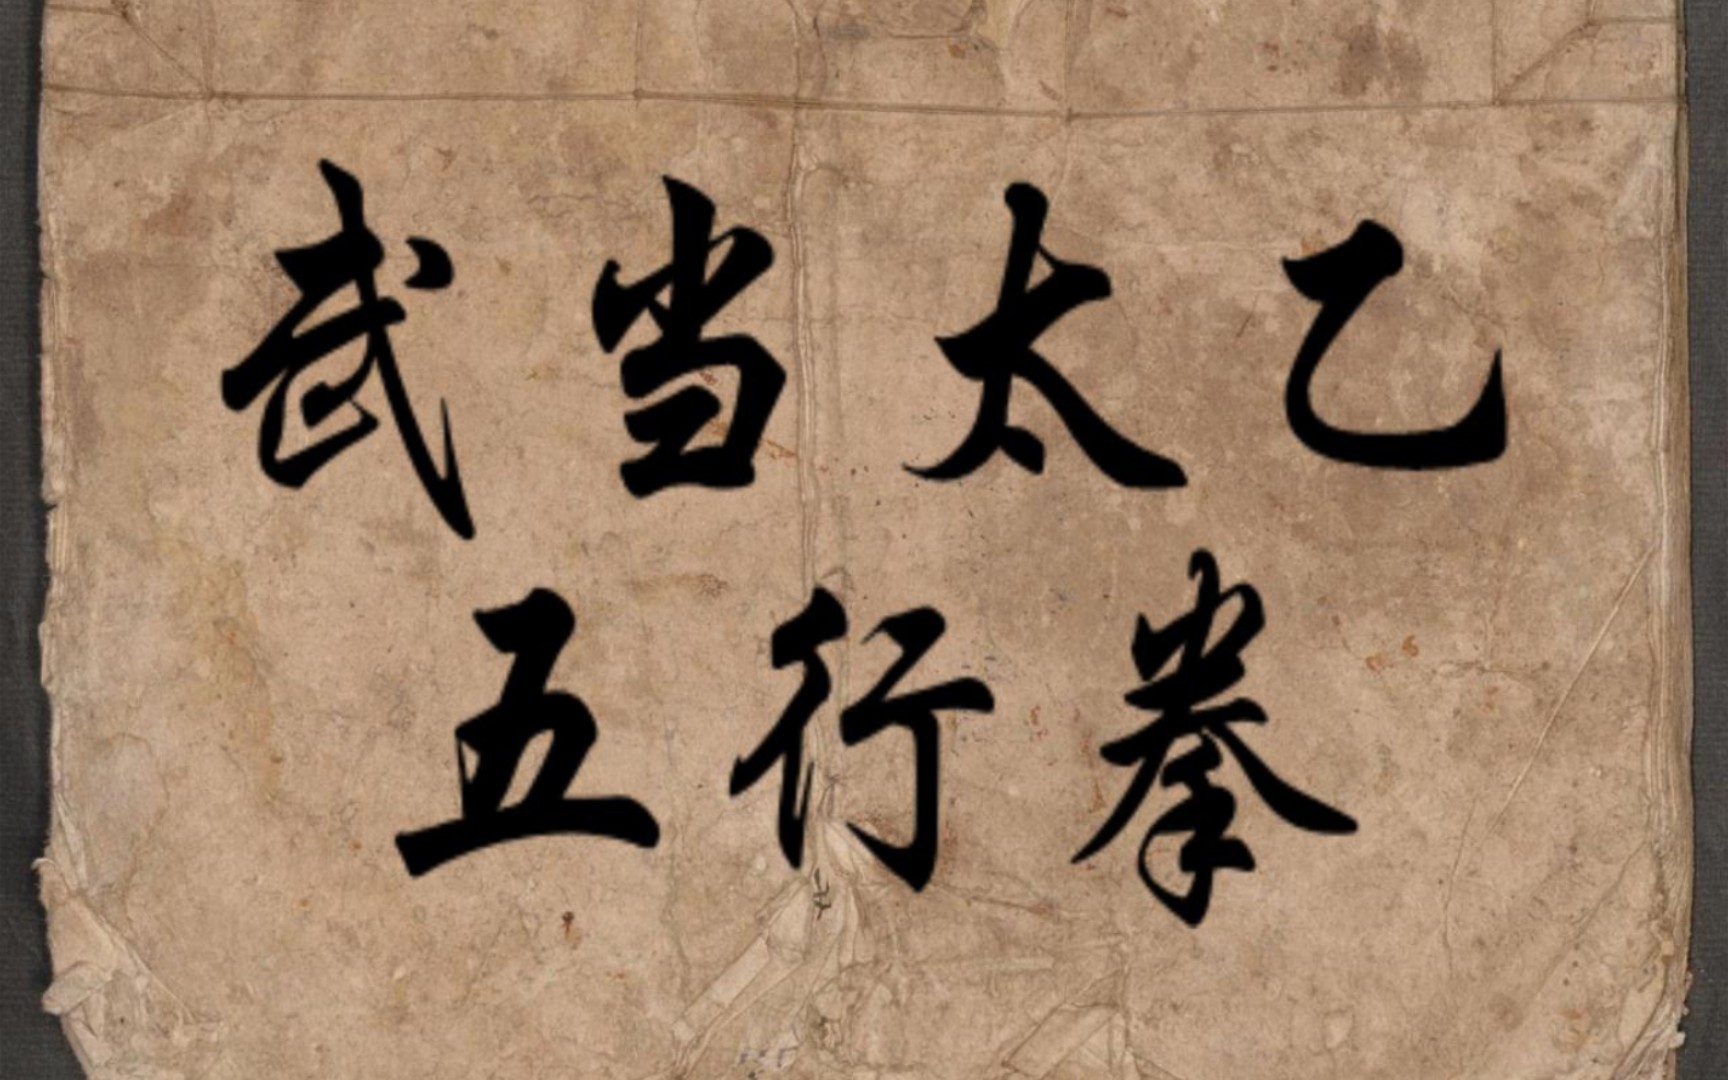 武当太乙
五行拳